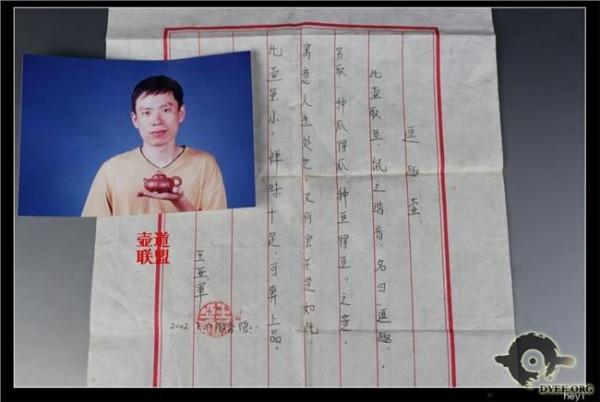 豆趣壶.
此壶取豆、鼠之谐音,名曰、逗趣.
另取“种瓜得瓜、种豆得豆”之意,
寓意人生处世,又何尝不是如此,
此壶虽小,禅味十足,可算上品。
王亚軍
2002
壶道
联盟
DYEE.ORG
hey1